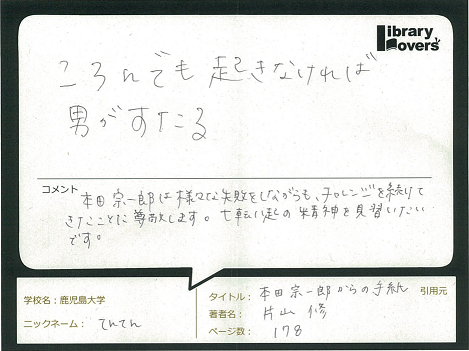 Library Lovers'
ころんでも起きなければ
男がすたる
コメント
本田宗一郎は様々な失敗をしながらも、チャレンジを続けて
きたことに尊敬します。七転八起の精神を見習いたい
です。
学校名：鹿児島大学
ニックネーム：てんてん
タイトル：本田宗一郎からの手紙 引用元
著者名：片山 修
ページ数：178